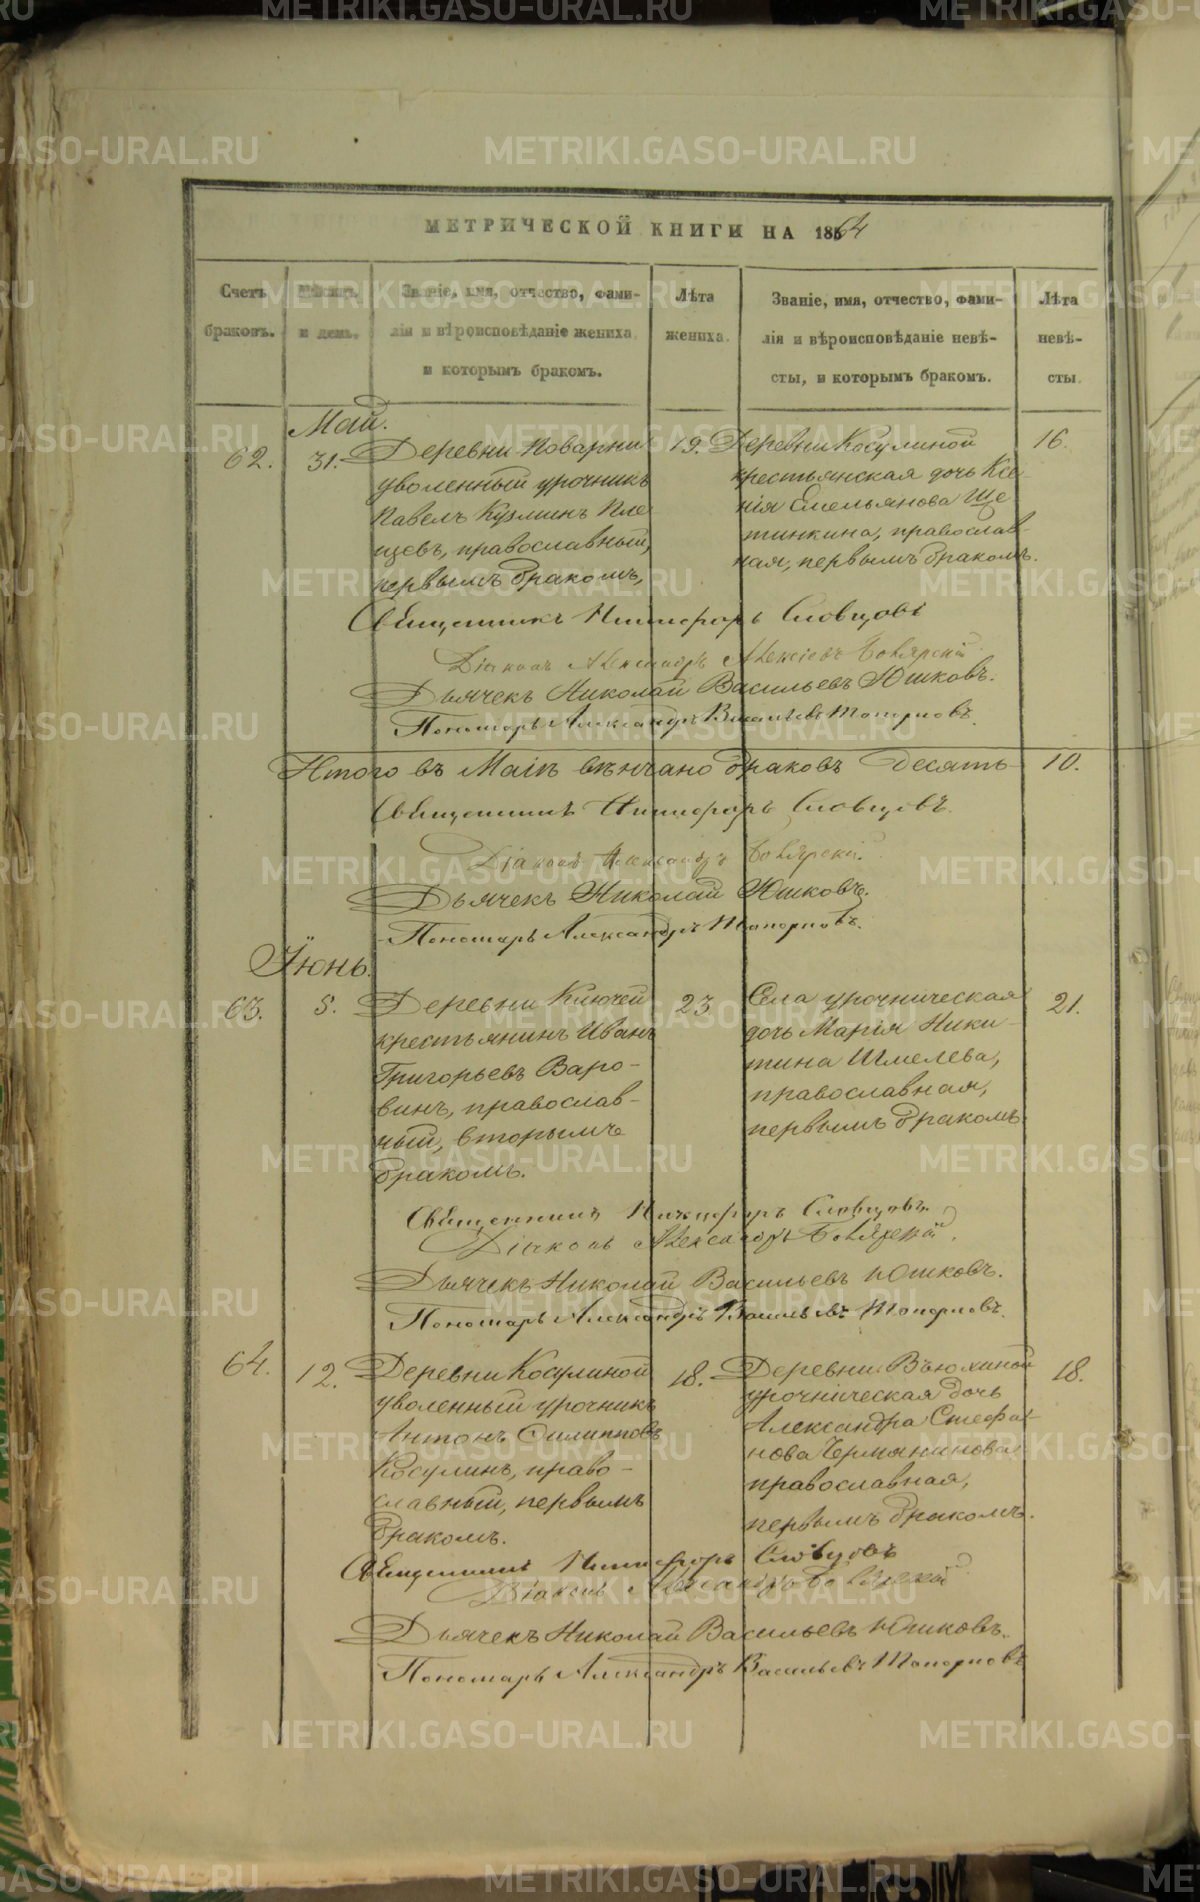 МЕТРИЧЕСКОЙ КНИГИ НА 1864
Счетъ браковъ.
Мѣсяцъ и день.
Званіе, имя, отчество, фами-
лія и вѣроисповѣданіе жениха
и которымъ бракомъ.
Лѣта жениха.
Званіе, имя, отчество, фами-
лія и вѣроисповѣданіе невѣ-
сты, и которымъ бракомъ.
Лѣта
невѣ-
сты.
Май.
62.
31.
Деревни Поварни
уволенный урочникъ
Павелъ Кузминъ Пле
щевъ, православный,
первымъ бракомъ,
19.
Деревни Косулиной
крестьянская дочь Ксе-
нія Емельянова Ще
тинкина, православ-
ная, первымъ бракомъ.
16.
Священникъ Никифоръ Словцовъ
Діаконъ Александръ Алексіевъ Боярскій
Дьячекъ Николай Васильевъ Юшковъ.
Пономарь Александръ Васильевъ Топорковъ.
Итого въ Маіѣ вѣнчано браковъ Десять 10.
Священникъ Никифоръ Словцовъ.
Діаконъ Александръ Боярскій.
Дьячекъ Николай Юшковъ.
Пономарь Александръ Топорковъ.
Іюнь.
63.
5.
Деревни Ключей
крестьянинъ Иванъ
Григорьевъ Варо-
винъ, православ-
ный, вторымъ
бракомъ.
23
Села урочническая
дочь Марія Ники-
тина Шмелева,
православная,
первымъ бракомъ.
21.
Священникъ Никифоръ Словцовъ.
Діаконъ Александръ Боярскій.
Дьячекъ Николай Васильевъ Юшковъ.
Пономарь Александръ Васильевъ Топорковъ.
64.
12.
Деревни Косулиной
уволенный урочникъ
Антонъ Филипповъ
Косулинъ, право-
славный, первымъ
бракомъ.
18.
Деревни Вьюхиной
урочническая дочь
Александра Стефа-
нова Чермянинова
православная,
первымъ бракомъ.
18.
Священникъ Никифоръ Словцовъ
Діаконъ Александръ Боярскій
Дьячекъ Николай Васильевъ Юшковъ.
Пономарь Александръ Васильевъ Топорковъ
METRIKI.GASO-URAL.RU